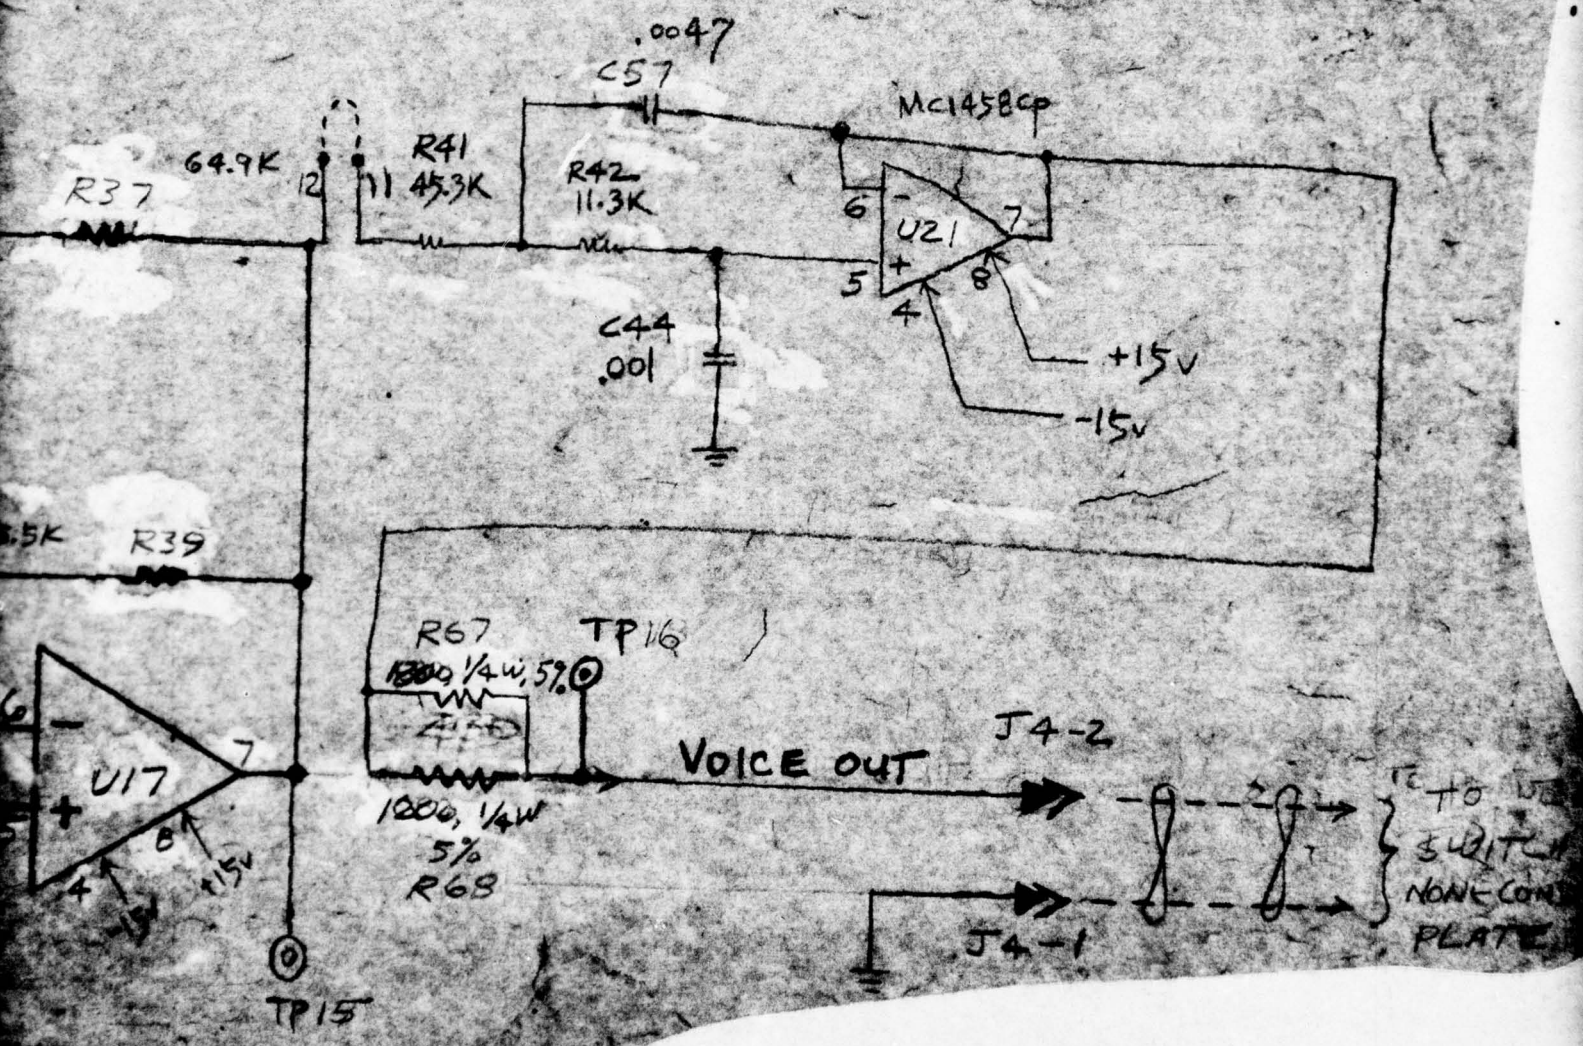 .0047
C57
MC1458CP
64.9K
R37
12
11
R41
45.3K
R42
11.3K
6
-
U21
7
+
5
8
4
C44
.001
+15V
-15V
.5K
R39
R67
1/4W, 5%
TP16
6
-
U17
7
+
8
4
+15V
-15V
1/4W
5%
R68
VOICE OUT
J4-2
J4-1
TO
SWITCH
NONE CON
PLATE
TP15